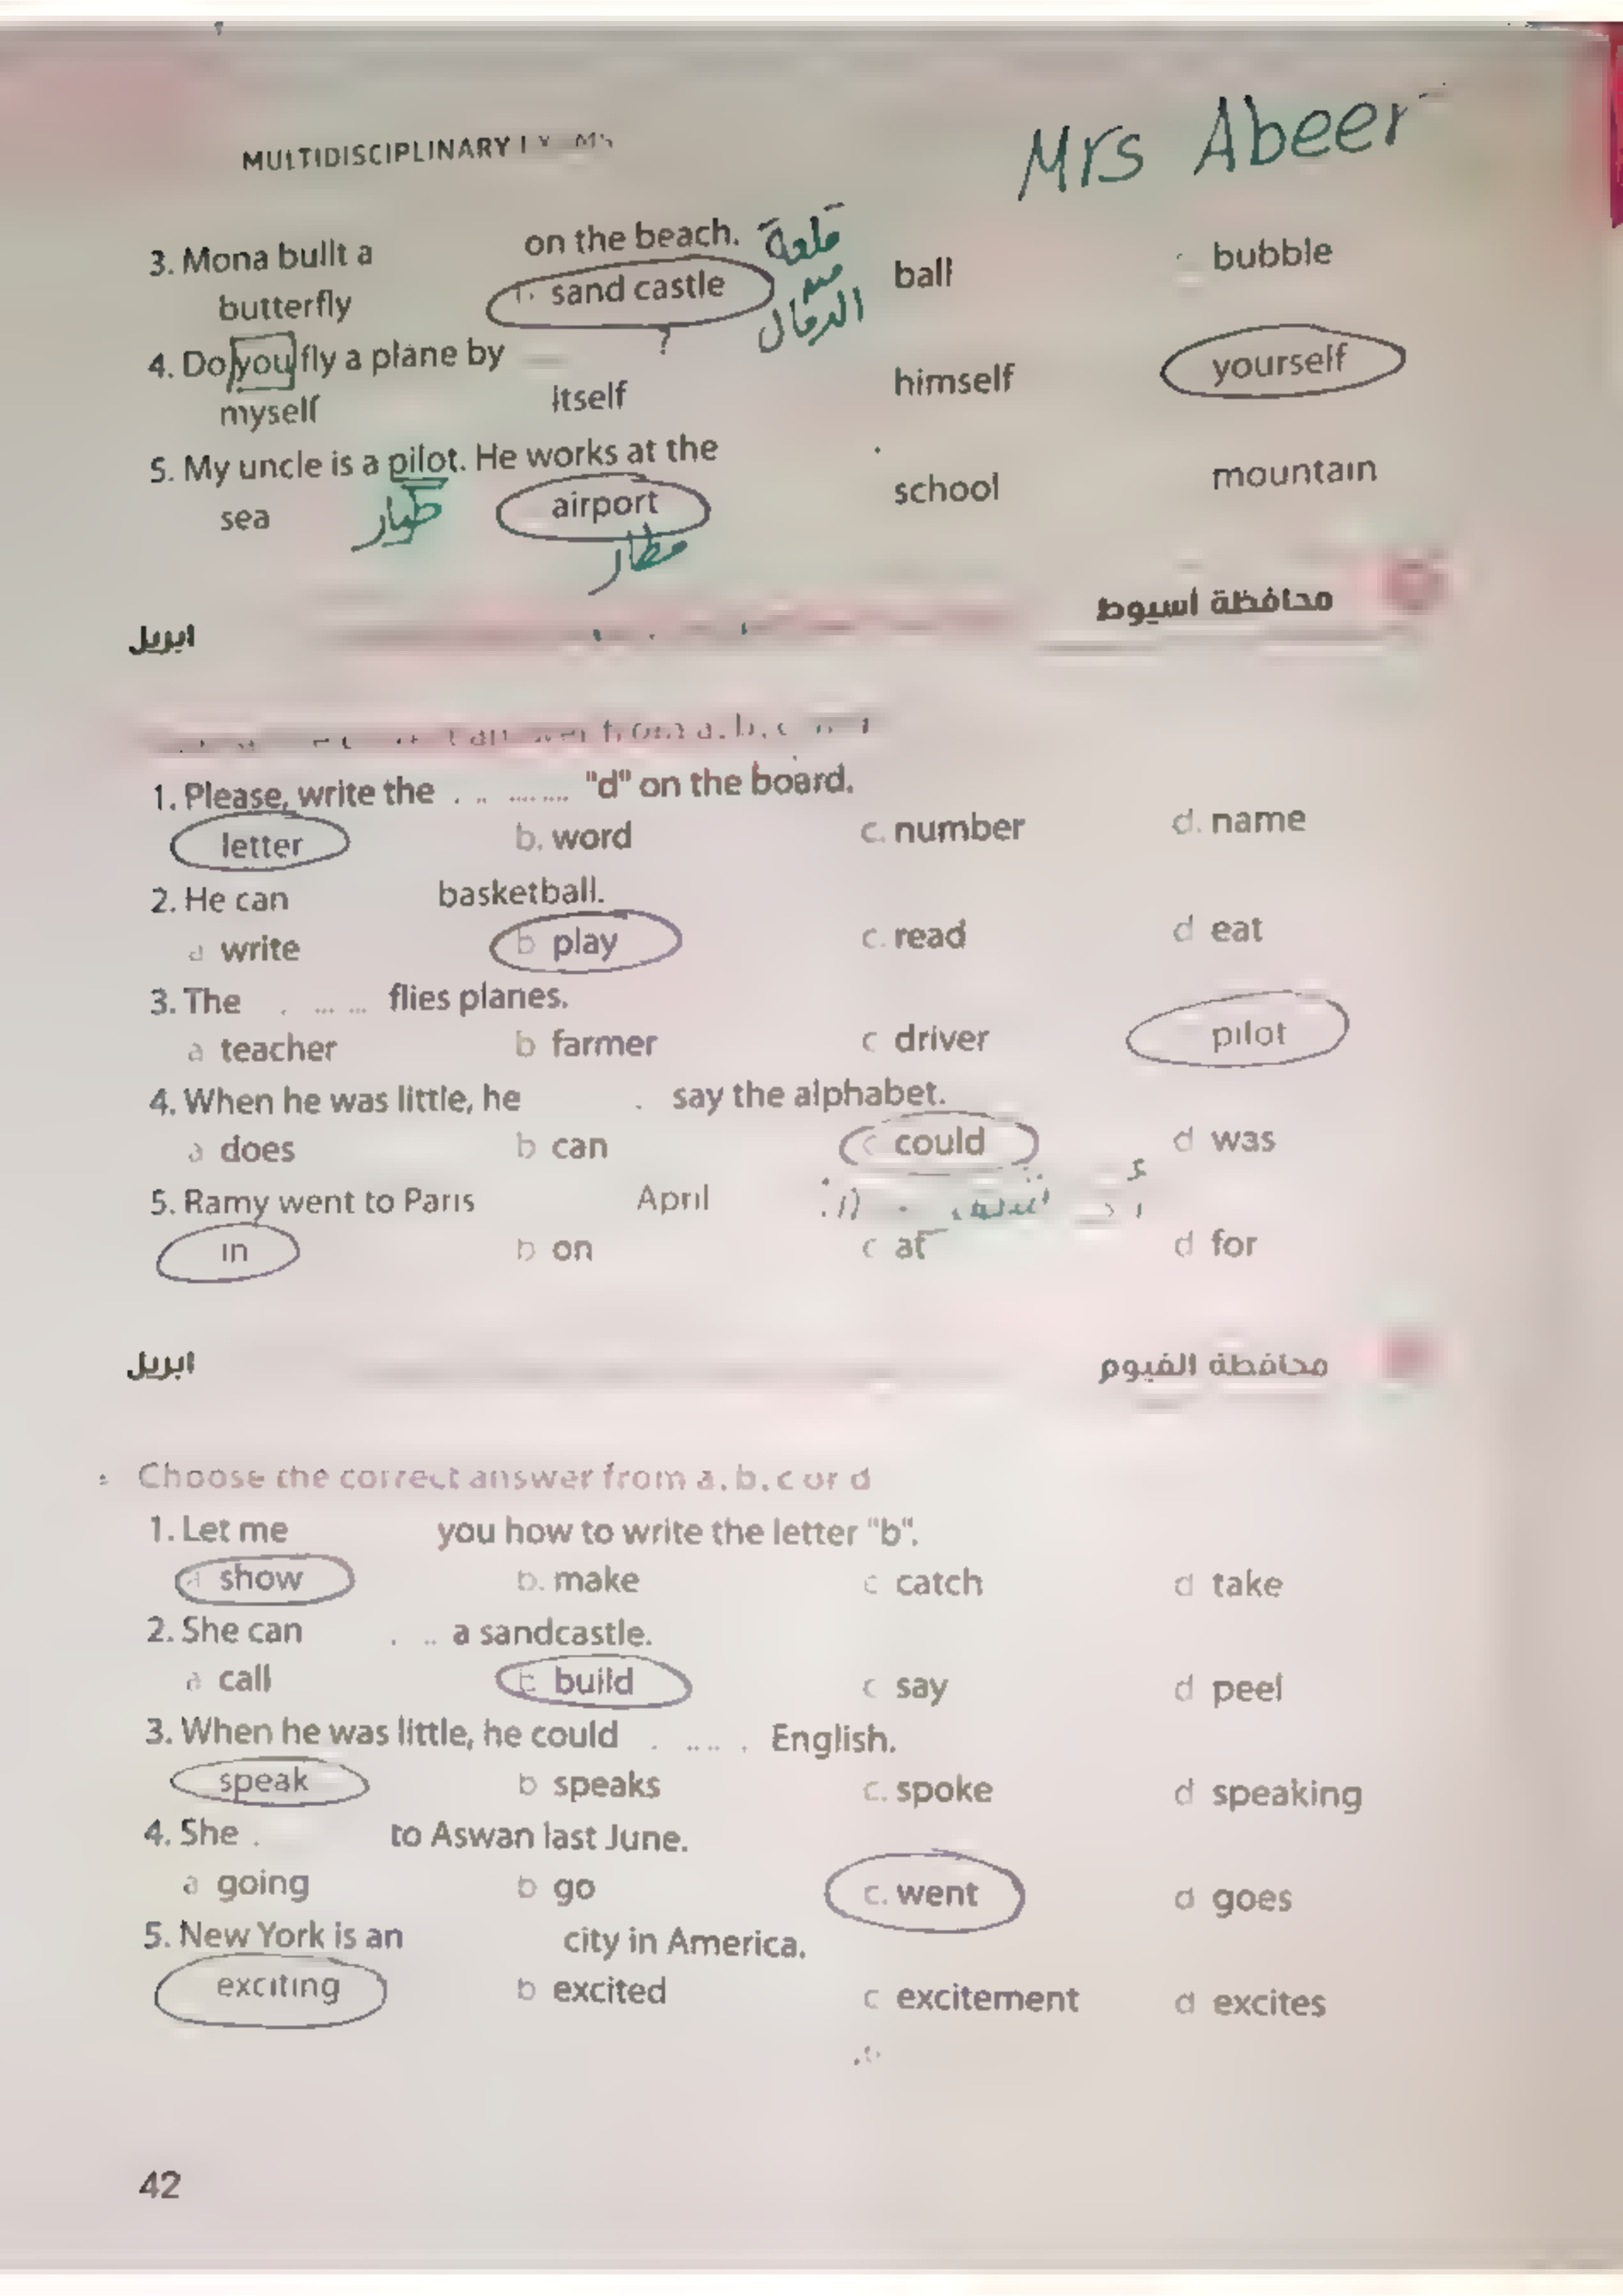 MULTIDISCIPLINARY
Mrs Abeer
3. Mona built a on the beach.
قلعة
من
الرمال
butterfly b. sand castle ball bubble
4. Do you fly a plane by ?
myself itself himself yourself
5. My uncle is a pilot. He works at the
sea airport school mountain
طيار
مطار
محافظة أسيوط
ابريل
from a, b, c
1. Please, write the "d" on the board.
letter b. word c. number d. name
2. He can basketball.
a write b play c. read d eat
3. The flies planes.
a teacher b farmer c driver pilot
4. When he was little, he say the alphabet.
a does b can c could d was
5. Ramy went to Paris April
in b on c at d for
محافظة الفيوم
ابريل
Choose the correct answer from a, b, c or d
1. Let me you how to write the letter "b".
a show b. make c catch d take
2. She can a sandcastle.
a call b build c say d peel
3. When he was little, he could English.
speak b speaks c. spoke d speaking
4. She to Aswan last June.
a going b go c. went d goes
5. New York is an city in America.
exciting b excited c excitement d excites
42